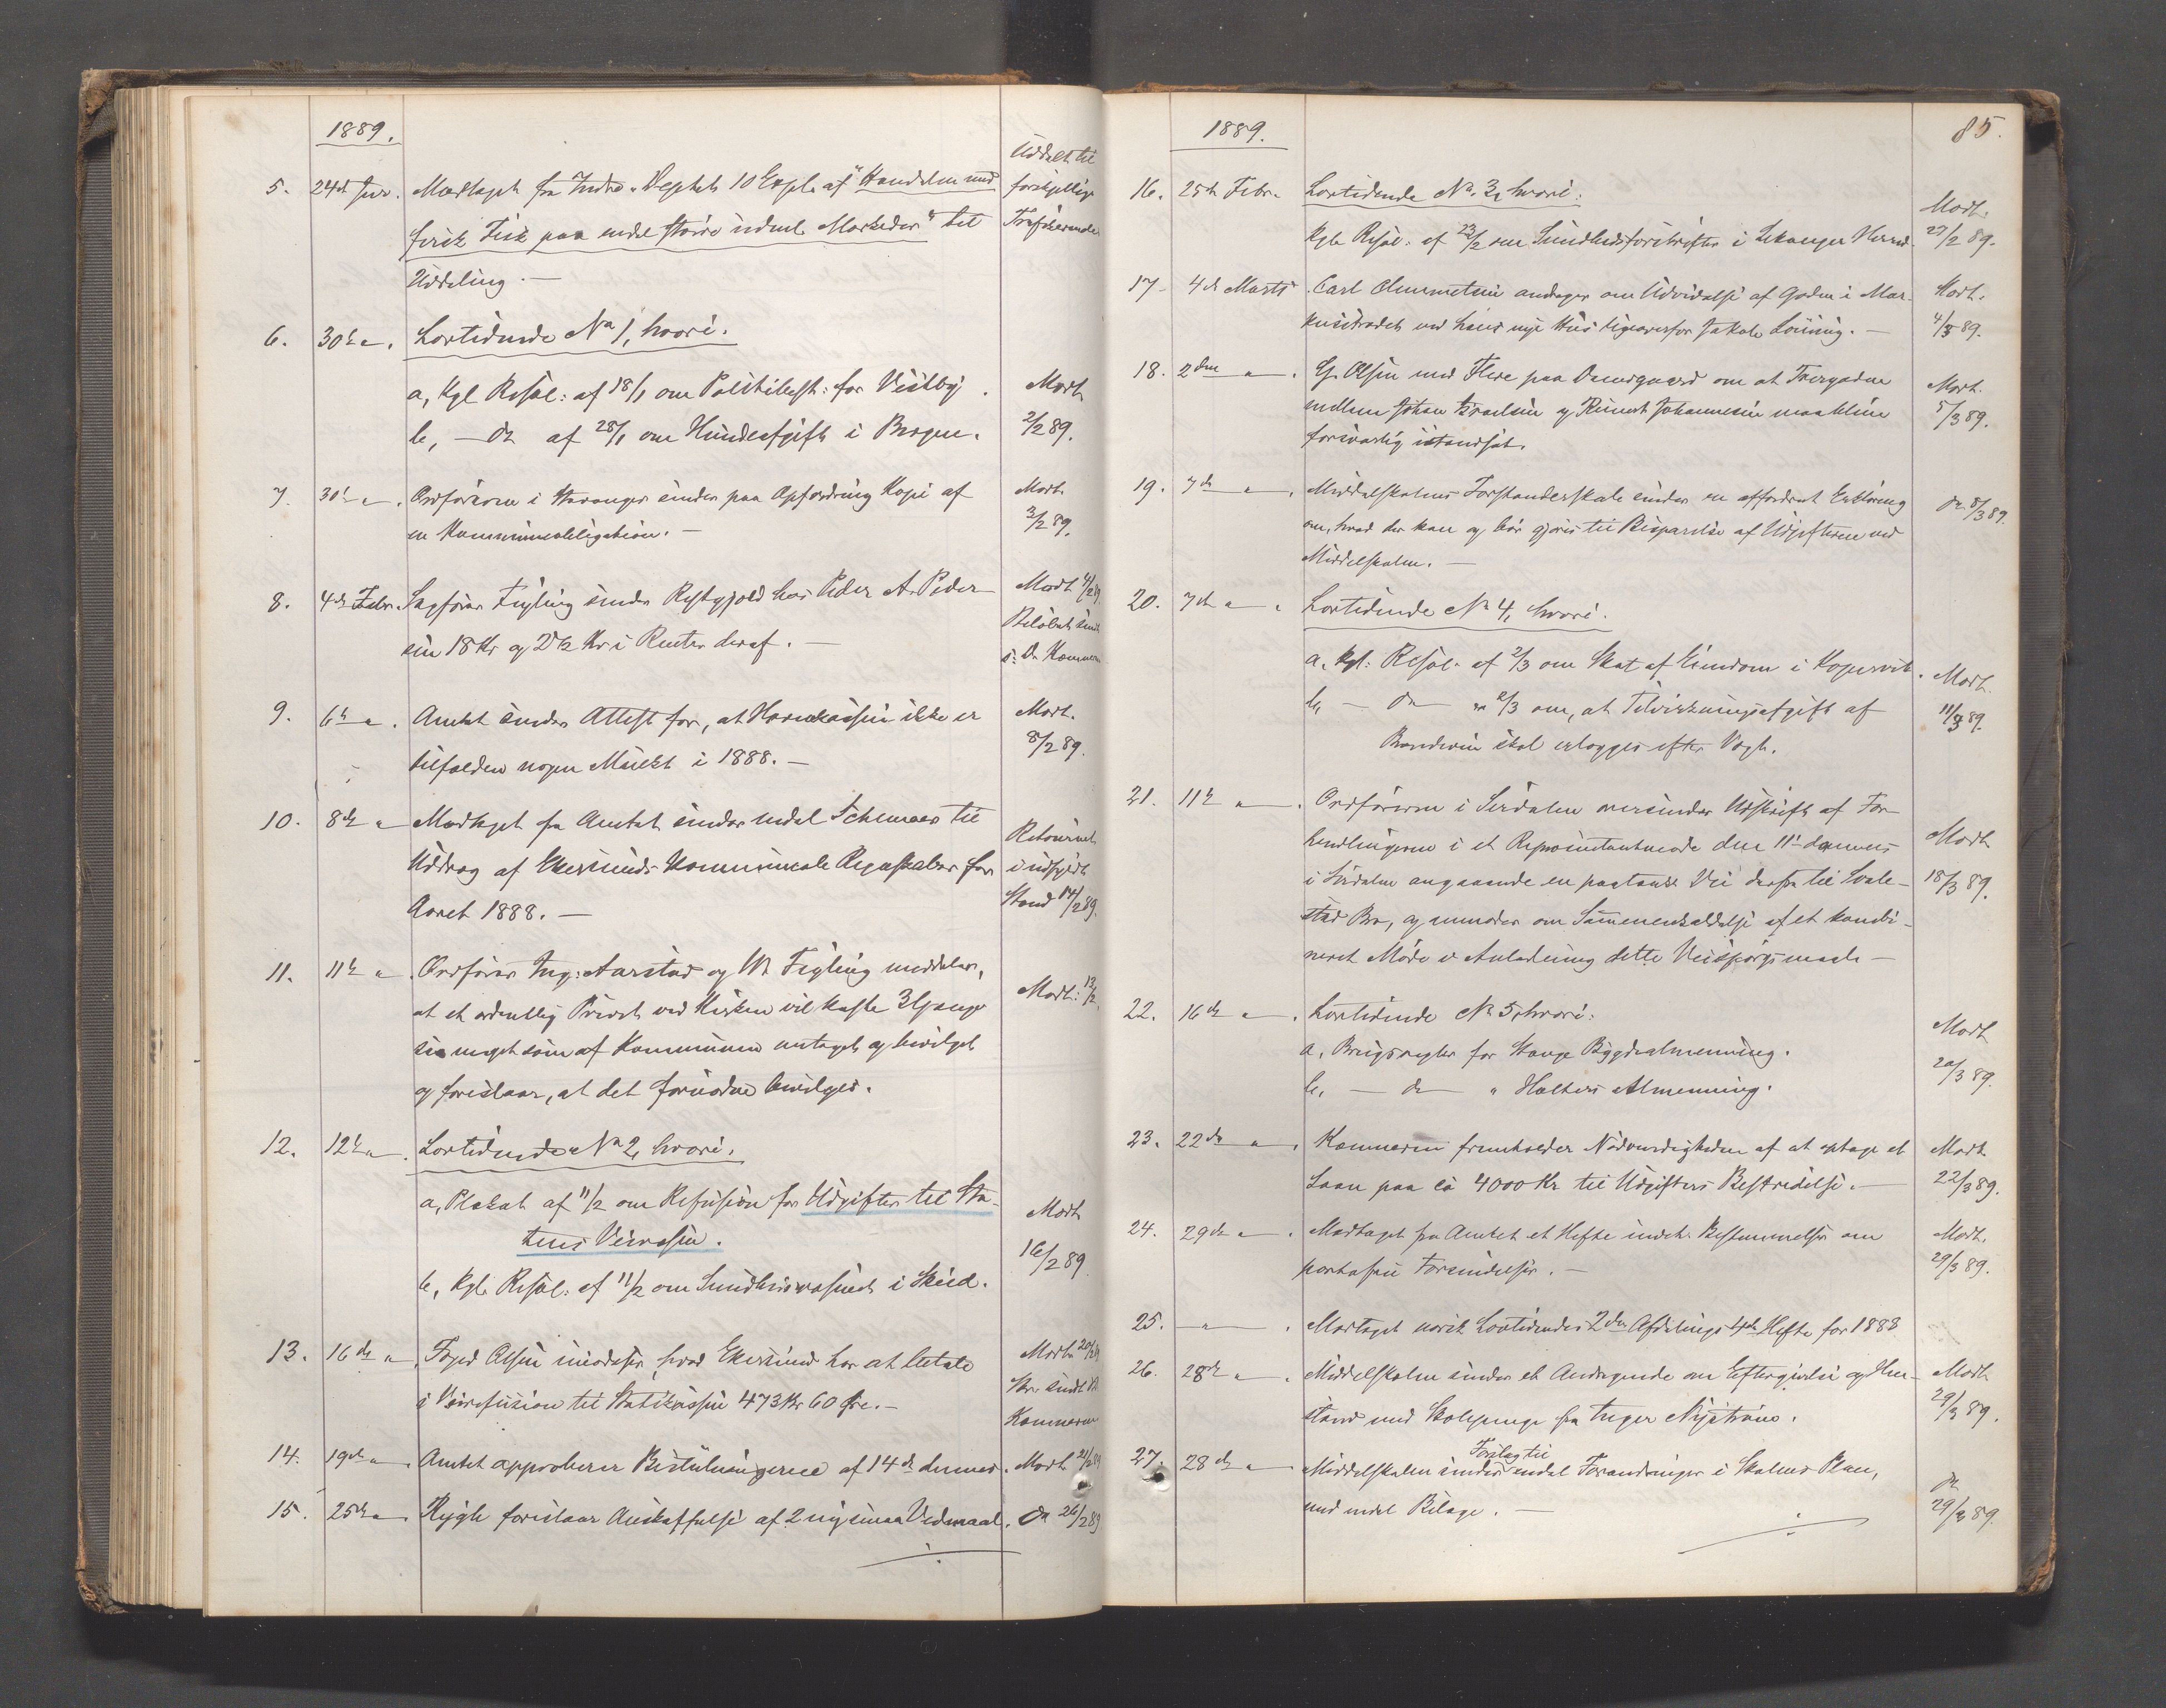 1889.
Uddelt til
5. 24de Jan. Modtaget fra Indre-Deptet 10 Expl. af "Handelen med forskjellige
fersk Fisk paa endel större udenl. Markeder" til Trafikerende.
Uddeling. —
6. 30te " . Lovtidende No 1, hvori.
a, Kgl Resol: af 18/1 om Politibest: for Vestby . Modt.
b, — do af 28/1 om Hundeafgift i Bergen. 2/2 89.
7. 30te " . Ordföreren i Stavanger sender paa Opfordring Kopi af Modt.
en Kommuneobligation. — 3/2 89.
8. 4de Febr. Sagförer Feyling sender Restgjeld hos Peder A. Peder- Modt 4/2 89.
sen 18 Kr og Kr i Renter deraf. — Belöbet sendt
Kæmner
9. 6te " . Amtet sender Attest for, at Havnekassen ikke er Modt.
tilfalden nogen Mulkt i 1888. — 8/2 89.
10. 8de " Modtaget fra Amtet sender endel Schemaer til Retourneret
Uddrag af Ekersunds Kommunale Regnskaber for i udfyldt
Aaret 1888. — Stand 14/2 89.
11. 11te " . Ordförer Ing: Aarstad og W. Feyling meddeler,
at et ordentlig Privet ved Kirken vil koste 3 Gange Modt: 12/2
saa meget som af Kommunen antaget og bevilget
og foreslaar, at det fornödne bevilges.
12. 12te " . Lovtidende No 2, hvori.
a, Plakat af 11/2 om Refusion for Udgifter til Sta- Modt.
tens Veivæsen. 16/2 89
b, Kgl. Resol: af 11/2 om Sundhedsvæsenet i Skied.
13. 16de " . Foged Olsen hvad Ekersund har at betale Modt. 20/2 89
i Veirefusion til Statskassen 473 Kr 60 Öre. — sendt
Kæmneren
14. 19de " . Amtet approberer Beslutningerne af 14de dennes. Modt. 21/2 89
15. 25de " Rygh foreslaar Anskaffelse af 2 nye Vedmaal. do 26/2 89
1889. 85.
16. 25de Febr. Lovtidende No. 3, hvori: Modt.
Kgl. Resol. af 23/2 om Sundhedsforskrifter i Lekanger Herred. 27/2 89.
17. 4de Marts . Carl Clementsen andrager om Udvidelse af Gaden i Mar- Modt.
ved hans nye Hus ligeoverfor Jakob Löining. — 4/3 89.
18. 2den " . G. Olsen med Flere paa Damsgaard om at Tvergaden Modt.
mellem Johan Israelsen og Reinert Johannesen maa blive 5/3 89.
forsvarlig istandsat.
19. 7de " . Middelskolens Forstanderskab sender en affordret Erklæring do 8/3 89.
om, hvad der kan og bör gjöres til Besparelse af Udgifterne ved
Middelskolen. —
20. 7de " . Lovtidende No 4, hvori.
a, Kgl: Resol. af 2/3 om Skat af Eiendom i Kopervik. Modt.
b, — do — " 2/3 om, at Tilvirkningsafgift af 11/3 89.
Brændevin skal erlægges efter Vægt.
21. 11te " . Ordföreren i Sirdalen oversender Udskrift af For- Modt.
handlingerne i et Repræsentantmöde den 11te dennes
i Sirdalen angaaende en paatænkt Vei derfra til Svale- 18/3 89.
stad Bro, og anmoder om Sammenkaldelse af et kombi-
neret Möde i Anledning dette Veispörgsmaal —
22. 16de " . Lovtidende No 5, hvori: Modt
a, Brugsregler for Stange Bygdealmenning.
b, — do — " Holters Almenning. 20/3 89.
23. 22de " . Kæmneren fremholder Nödvendigheden af at optage et Modt.
Laan paa ca 4000 Kr til Udgifters Bestridelse. — 22/3 89.
24. 29de " . Modtaget fra Amtet et Hefte indeh. Bestemmelser om Modt.
portofrie Forsendelser. — 29/3 89.
25. — " — . Modtaget norsk Lovtidendes 2den Afdelings 4de Hefte for 1888
26. 28de " . Middelskolen sender et Andragende om Eftergivelse og Hen- Modt.
stand med Skolepenge fra Inger Nyströms. 29/3 89.
27. 28de " Middelskolen sender Forslag til endel Forandringer i Skolens Plan, do
med endel Bilage. — 29/3 89.